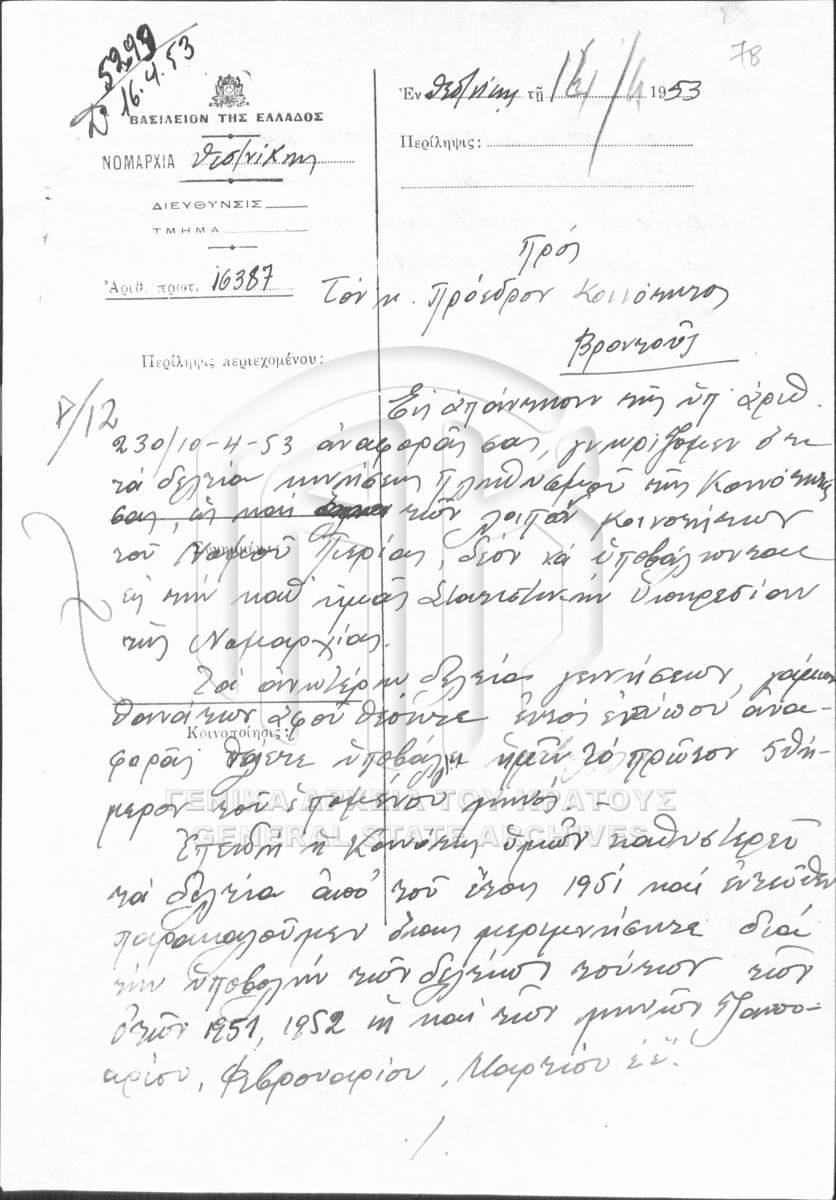 5298
16.4.53
78
ΒΑΣΙΛΕΙΟΝ ΤΗΣ ΕΛΛΑΔΟΣ
ΝΟΜΑΡΧΙΑ Θεσ/νίκης
ΔΙΕΥΘΥΝΣΙΣ
ΤΜΗΜΑ
Ἀριθ. πρωτ. 16387
Ἐν Θεσ/νίκῃ τῇ 14/4 1953
Περίληψις:
Πρός
Τόν κ. Πρόεδρον Κοινότητος
Βροντοῦς
Περίληψις περιεχομένου:
8/12
Εἰς ἀπάντησιν τῆς ὑπ' ἀριθ.
230/10-4-53 ἀναφορᾶς σας, γνωρίζομεν ὅτι
τά δελτία κινήσεως πληθυσμοῦ τῆς Κοινότητος
σας, ὡς καί τῶν λοιπῶν Κοινοτήτων
τοῦ Νομοῦ Πιερίας, δέον νά ὑποβάλλωνται
εἰς τήν καθ' ἡμᾶς Στατιστικήν Ὑπηρεσίαν
τῆς Νομαρχίας.
Τά ἀνωτέρω δελτία γεννήσεων, γάμων
θανάτων ἀφοῦ θέσητε ἐντός ἐντύπου ἀνα-
Κοινοποίησις:
φορᾶς θέλετε ὑποβάλλει ἡμῖν τό πρῶτον 5θή-
μερον τοῦ ἑπομένου μηνός.-
ΓΕΝΙΚΑ ΑΡΧΕΙΑ ΤΟΥ ΚΡΑΤΟΥΣ
GENERAL STATE ARCHIVES
Ἐπειδή ἡ Κοινότης ὑμῶν καθυστερεῖ
τά δελτία ἀπό τοῦ ἔτους 1951 καί ἐντεῦθεν
παρακαλοῦμεν ὅπως μεριμνήσητε διά
τήν ὑποβολήν τῶν δελτίων τούτων τῶν
ἐτῶν 1951, 1952 ὡς καί τῶν μηνῶν Ἰανου-
αρίου, Φεβρουαρίου, Μαρτίου ἐ.ἔ.
./.